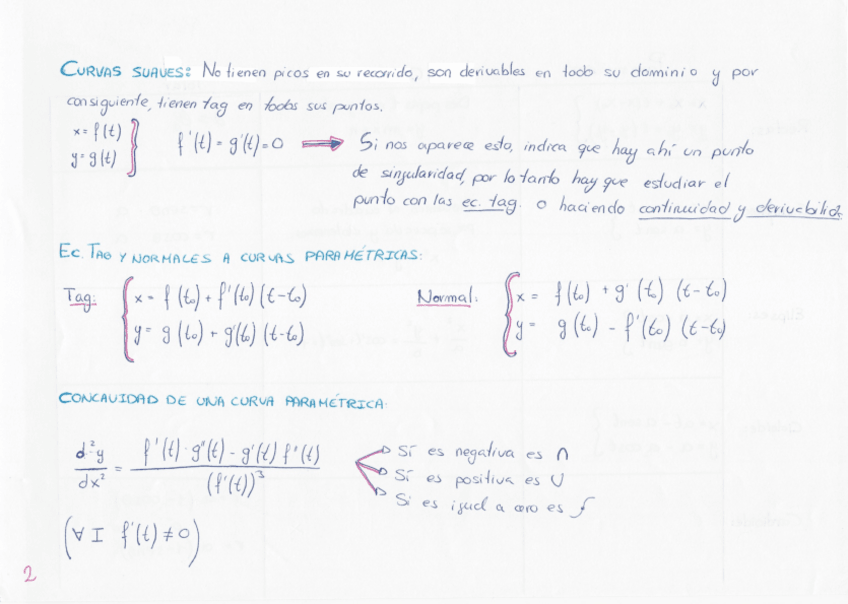 CURVAS SUAVES: No tienen picos en su recorrido, son derivables en todo su dominio y por
consiguiente, tienen tag en todos sus puntos.
x = f(t)
y = g(t)
f'(t) = g'(t) = 0
Si nos aparece esto, indica que hay ahí un punto
de singularidad, por lo tanto hay que estudiar el
punto con las ec. tag. o haciendo continuidad y derivabilid
EC. TAG Y NORMALES A CURVAS PARAMÉTRICAS:
Tag:
x = f(t₀) + f'(t₀) (t-t₀)
y = g(t₀) + g'(t₀) (t-t₀)
Normal:
x = f(t₀) + g'(t₀) (t-t₀)
y = g(t₀) - f'(t₀) (t-t₀)
CONCAVIDAD DE UNA CURVA PARAMÉTRICA:
d²y/dx² = (f'(t)·g''(t) - g'(t) f''(t))/(f'(t))³
Sí es negativa es ∩
Sí es positiva es ∪
Si es igual a cero es ∫
(∀ I f'(t) ≠ 0)
2